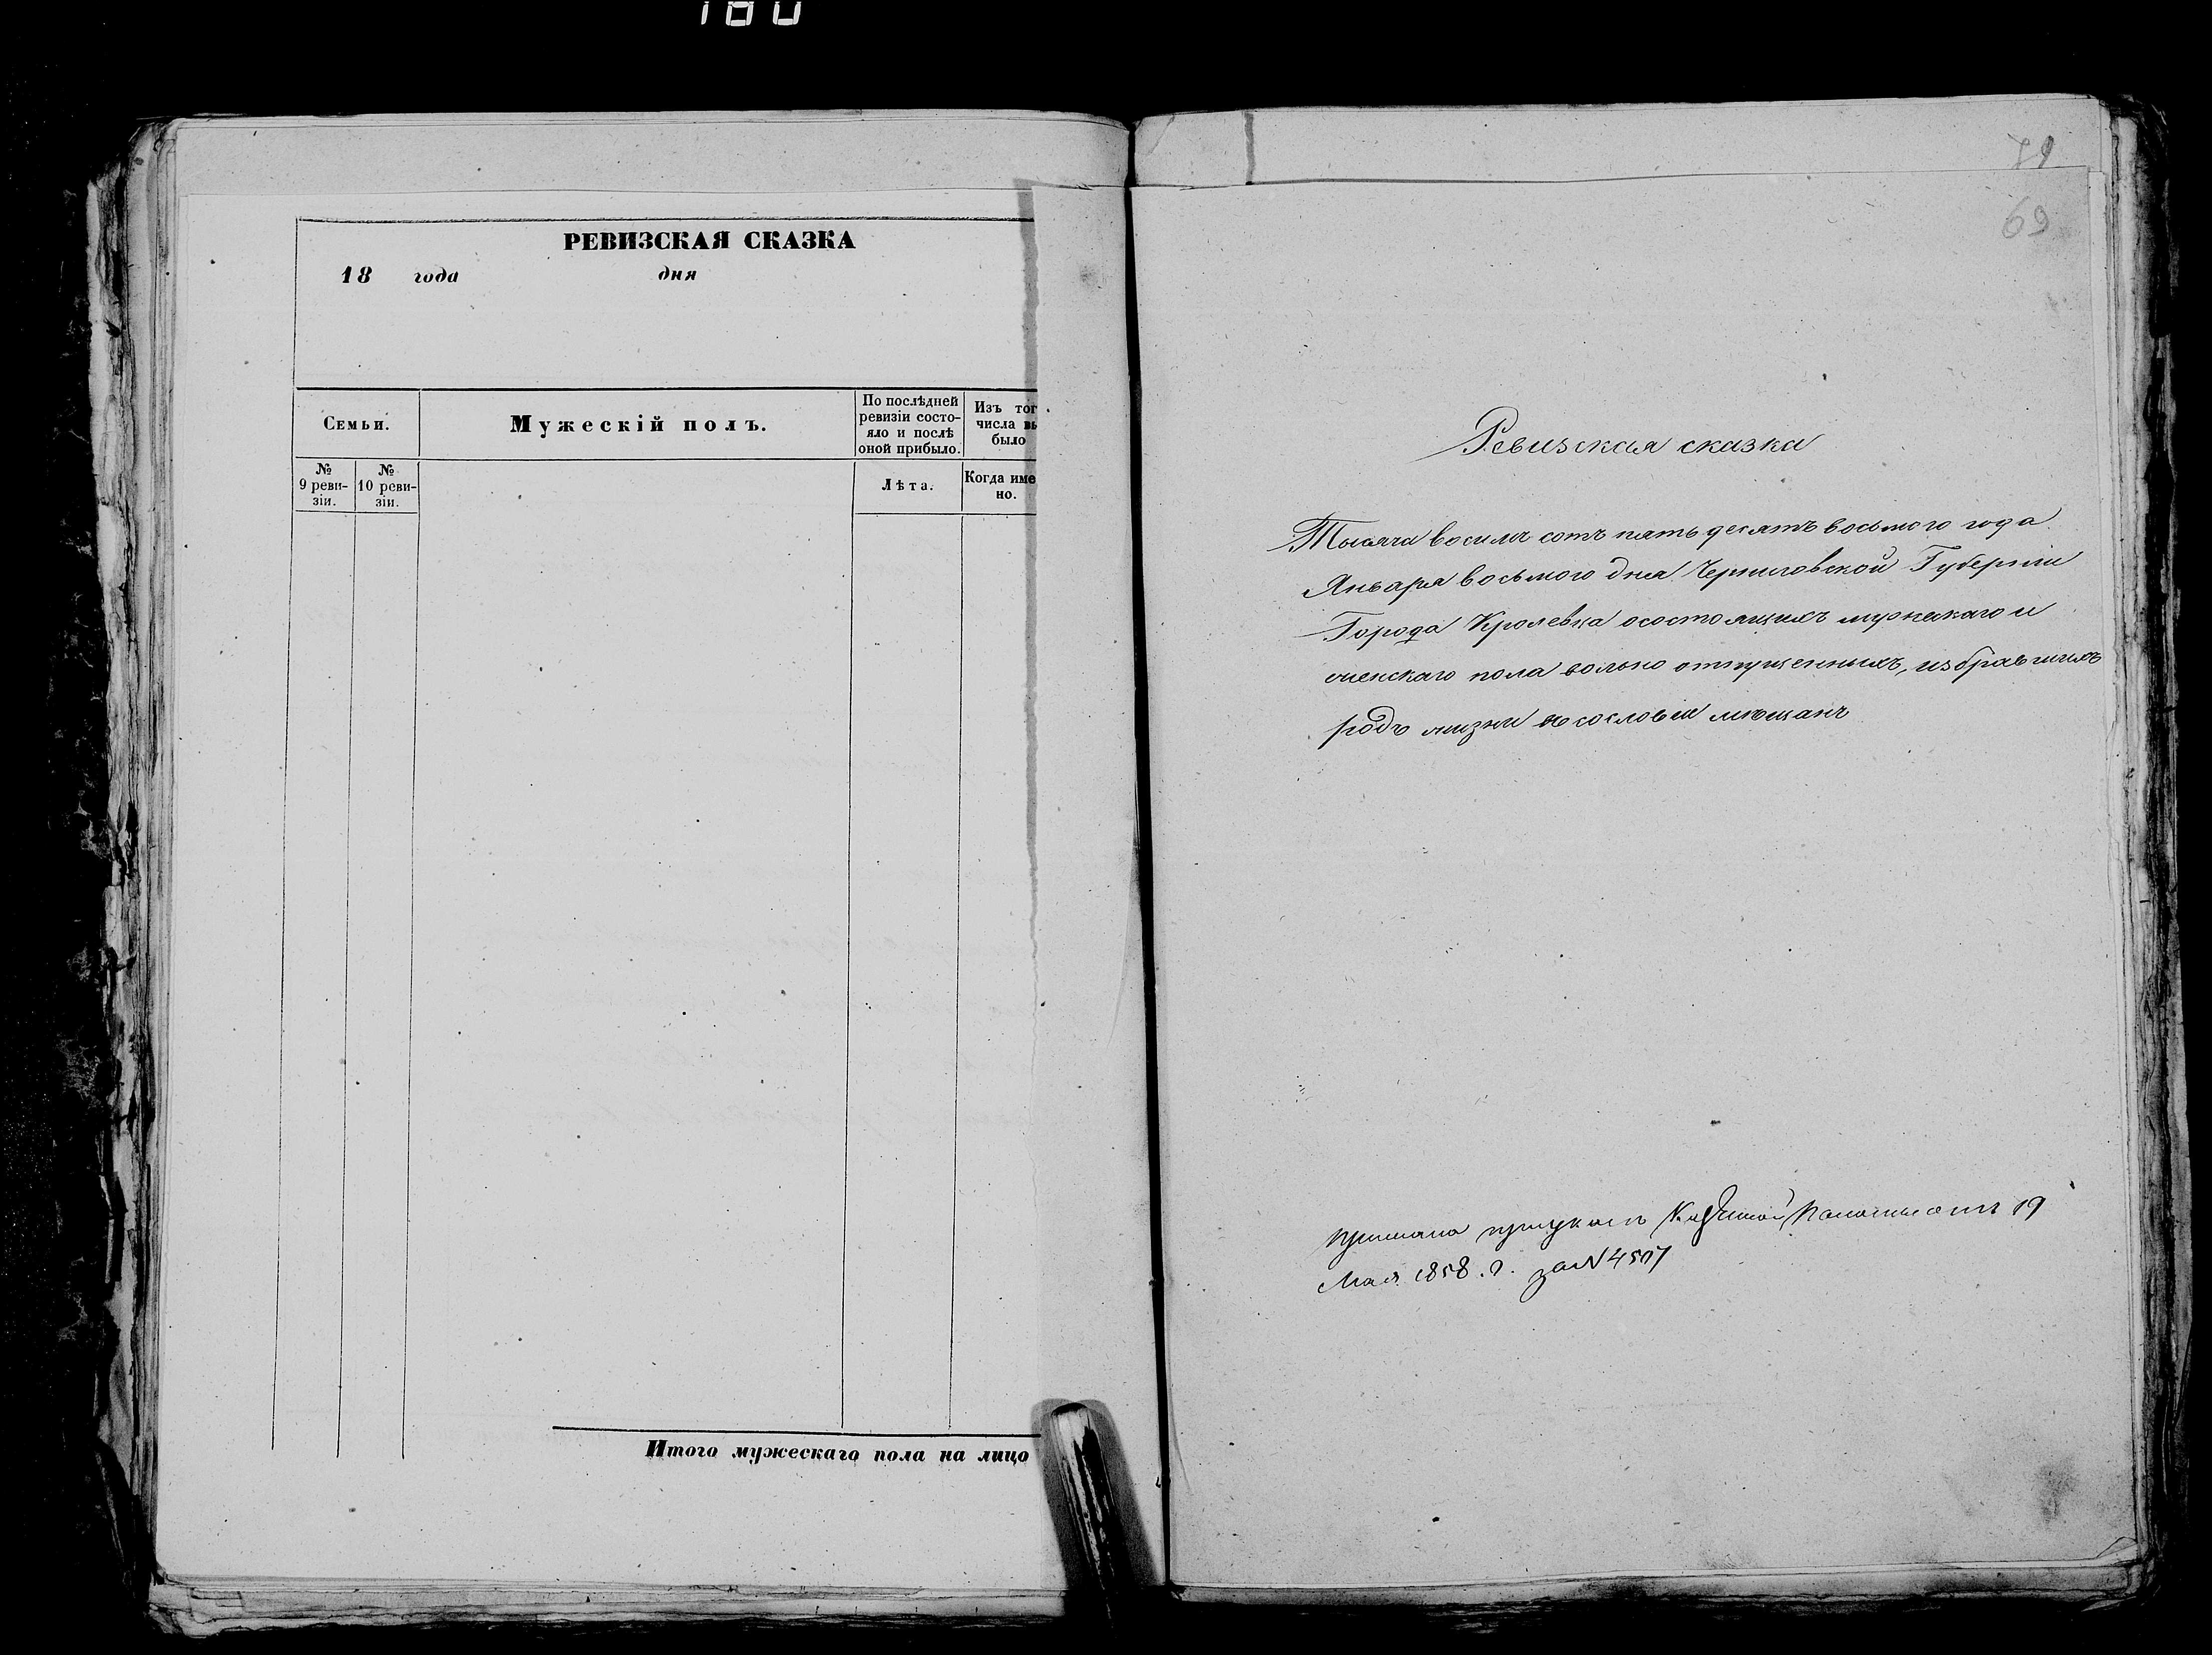 180
РЕВИЗСКАЯ СКАЗКА
18 года дня
Семьи.
Мужескій полъ.
По послѣдней
ревизіи состо-
яло и послѣ
оной прибыло.
Изъ тог
числа вы
было
№
9 реви-
зіи.
№
10 реви-
зіи.
Лѣта.
Когда име
но.
Итого мужескаго пола на лицо
71
69
Ревизская сказка
Тысяча восемь сотъ пять десятъ восьмого года
Января восьмого дня Черниговской Губерніи
Города Кролевца осостоящихъ мужескаго и
женскаго пола вольно отпущенныхъ, избравшихъ
родъ жизни въ сословіи мѣщанъ
Казенной Палаты отъ 19
Мая 1858. г. за №4507